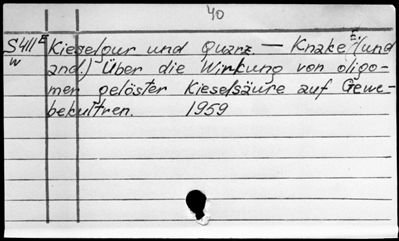 40
S411E Kieselgur und Quarz. — Knake E. (und
w and.) Über die Wirkung von oligo-
mer gelöster Kieselsäure auf Gewe-
bekultren. 1959